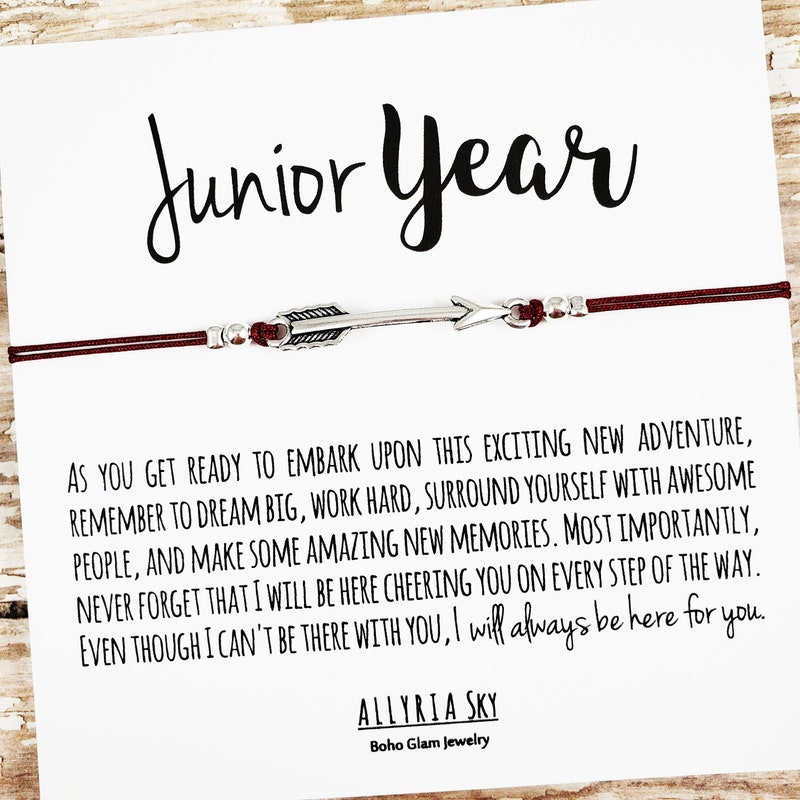 Junior Year
As you get ready to embark upon this exciting new adventure,
remember to dream big, work hard, surround yourself with awesome
people, and make some amazing new memories. Most importantly,
never forget that I will be here cheering you on every step of the way.
Even though I can't be there with you, I will always be here for you.
ALLYRIA SKY
Boho Glam Jewelry